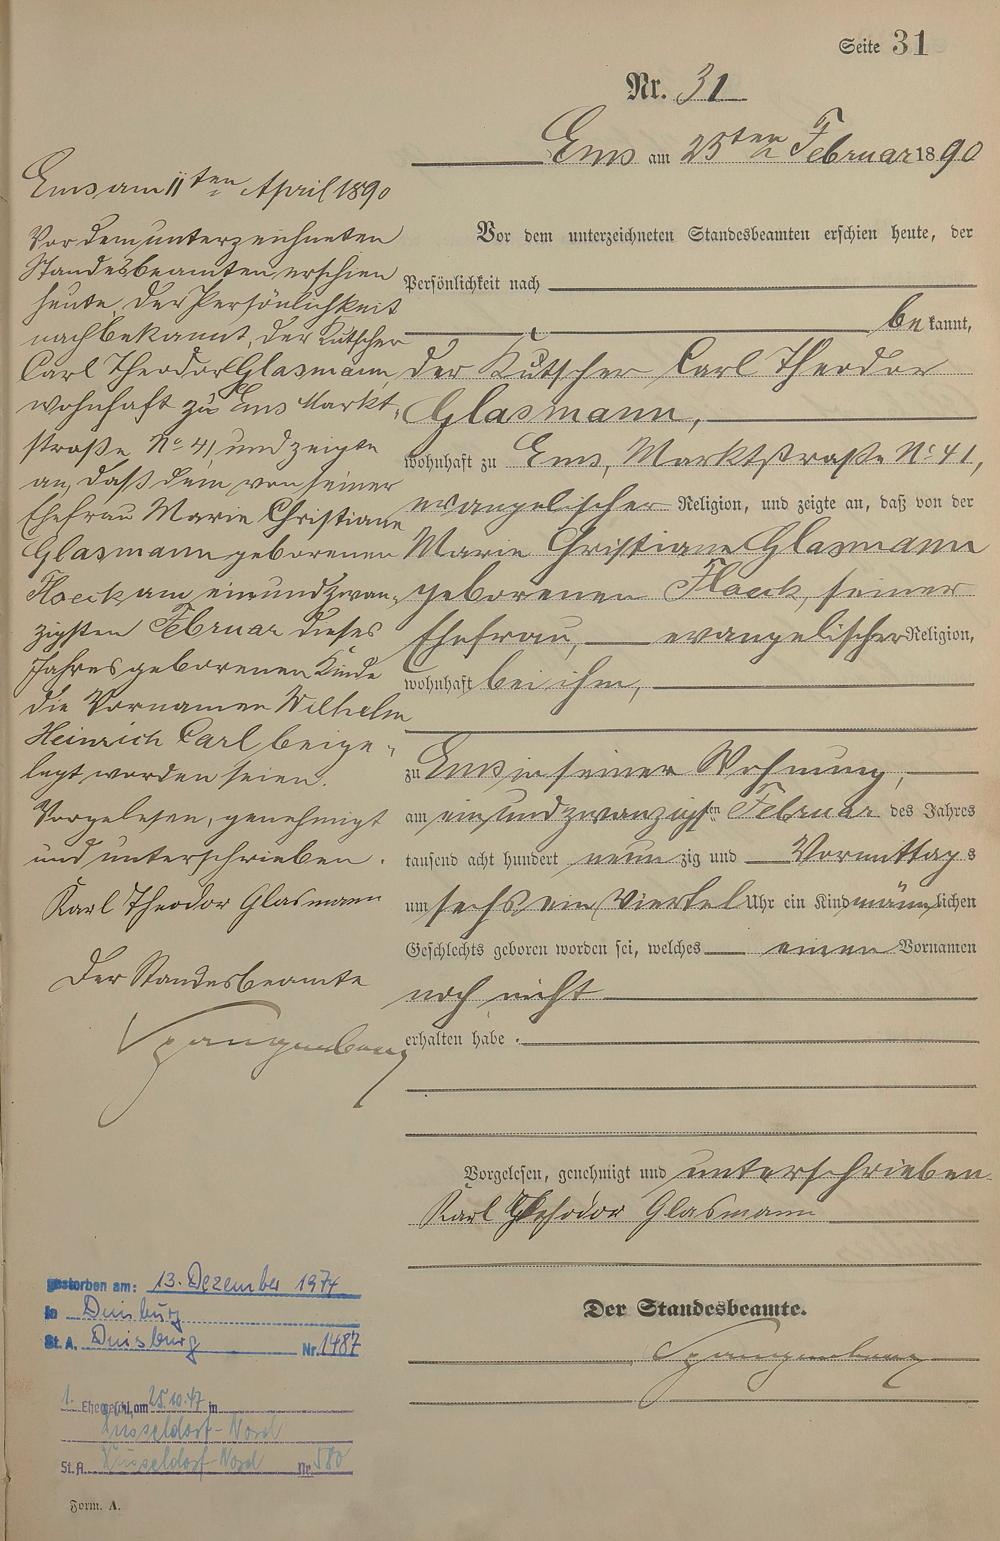 Seite 31
Nr. 31
Ems am 25ten Februar 1890
Vor dem unterzeichneten Standesbeamten erschien heute, der
Persönlichkeit nach
bekannt,
der Kutscher Carl Theodor
Glasmann,
wohnhaft zu Ems, Marktstraße No 41,
evangelischer Religion, und zeigte an, daß von der
Marie Christiane Glasmann
geborenen Floeck, seiner
Ehefrau, evangelischer Religion,
wohnhaft bei ihm,
zu Ems in seiner Wohnung,
am ein und zwanzigsten Februar des Jahres
tausend acht hundert neunzig und Vormittags
um sechs ein Viertel Uhr ein Kind männlichen
Geschlechts geboren worden sei, welches einen Vornamen
noch nicht
erhalten habe.
Vorgelesen, genehmigt und unterschrieben
Karl Theodor Glasmann
Der Standesbeamte.
Spangenberg
Ems am 11ten April 1890
Vor dem unterzeichneten
Standesbeamten erschien
heute, der Persönlichkeit
nach bekannt, der Kutscher
Carl Theodor Glasmann,
wohnhaft zu Ems Markt-
straße No 41, und zeigte
an, daß dem von seiner
Ehefrau Marie Christiane
Glasmann geborenen
Floeck am einundzwan-
zigsten Februar dieses
Jahres geborenen Kinde
die Vornamen Wilhelm
Heinrich Carl beige-
legt worden seien.
Vorgelesen, genehmigt
und unterschrieben.
Karl Theodor Glasmann
Der Standesbeamte
Spangenberg
gestorben am: 13. Dezember 1974
in Duisburg
St. A. Duisburg Nr. 1487
1. Eheschl. am 25.10.47 in
Düsseldorf-Nord
St. A. Düsseldorf-Nord Nr. 580
Form. A.